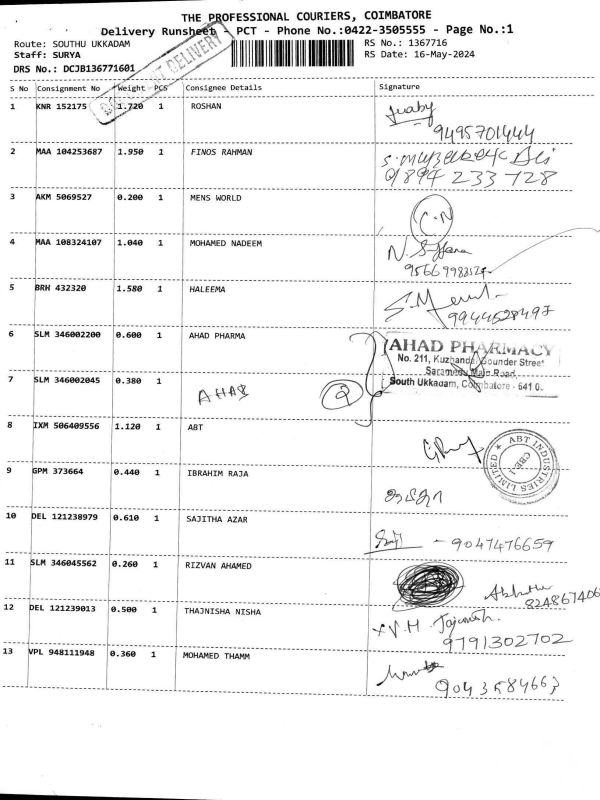 THE PROFESSIONAL COURIERS, COIMBATORE
Delivery Runsheet - PCT - Phone No.:0422-3505555 - Page No.:1
Route: SOUTHU UKKADAM
RS No.: 1367716
Staff: SURYA
RS Date: 16-May-2024
DRS No.: DCJB136771601
DELIVERY
S No Consignment No Weight PCS Consignee Details Signature
1 KNR 152175 1.720 1 ROSHAN
9495701444
2 MAA 104253687 1.950 1 FINOS RAHMAN
9894 233 728
3 AKM 5069527 0.200 1 MENS WORLD
C.N
4 MAA 108324107 1.040 1 MOHAMED NADEEM
5 BRH 432320 1.580 1 HALEEMA
9944528497
6 SLM 346002200 0.600 1 AHAD PHARMA
AHAD PHARMACY
No. 211, Gounder Street
Main Road
South Ukkadam, Coimbatore - 641 0
7 SLM 346002045 0.380 1
AHAD
2
8 IXM 506409556 1.120 1 ABT
ABT INDUSTRIES LIMITED
CBE-1
9 GPM 373664 0.440 1 IBRAHIM RAJA
10 DEL 121238979 0.610 1 SAJITHA AZAR
- 9047476659
11 SLM 346045562 0.260 1 RIZVAN AHAMED
12 DEL 121239013 0.500 1 THAJNISHA NISHA
9791302702
13 VPL 948111948 0.360 1 MOHAMED THAMM
9043584667